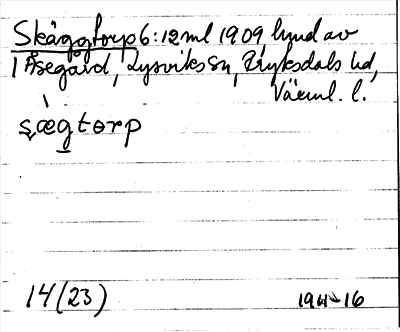 Skäggtorp 6:12 ml 1909, lund av
1 Åsegård, Lysviks sn, Fryksdals hd,
Värml. l.
sægtorp
14(23)
1961-16